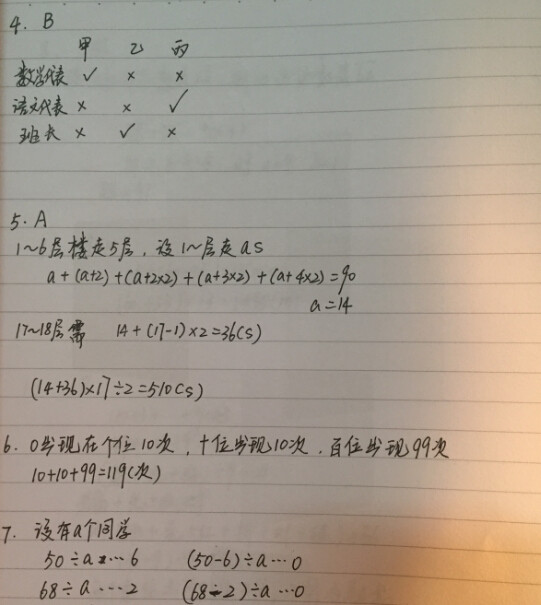 4. B
甲 乙 丙
数学代表 ✓ × ×
语文代表 × × ✓
班长 × ✓ ×
5. A
1~6层楼走5层，设1~层走as
a+(a+2)+(a+2×2)+(a+3×2)+(a+4×2)=90
a=14
17~18层需 14+(17-1)×2=36(s)
(14+36)×17÷2=510(s)
6. 0出现在个位10次，十位出现10次，百位出现99次
10+10+99=119(次)
7. 设有a个同学
50÷a…6 (50-6)÷a…0
68÷a…2 (68-2)÷a…0